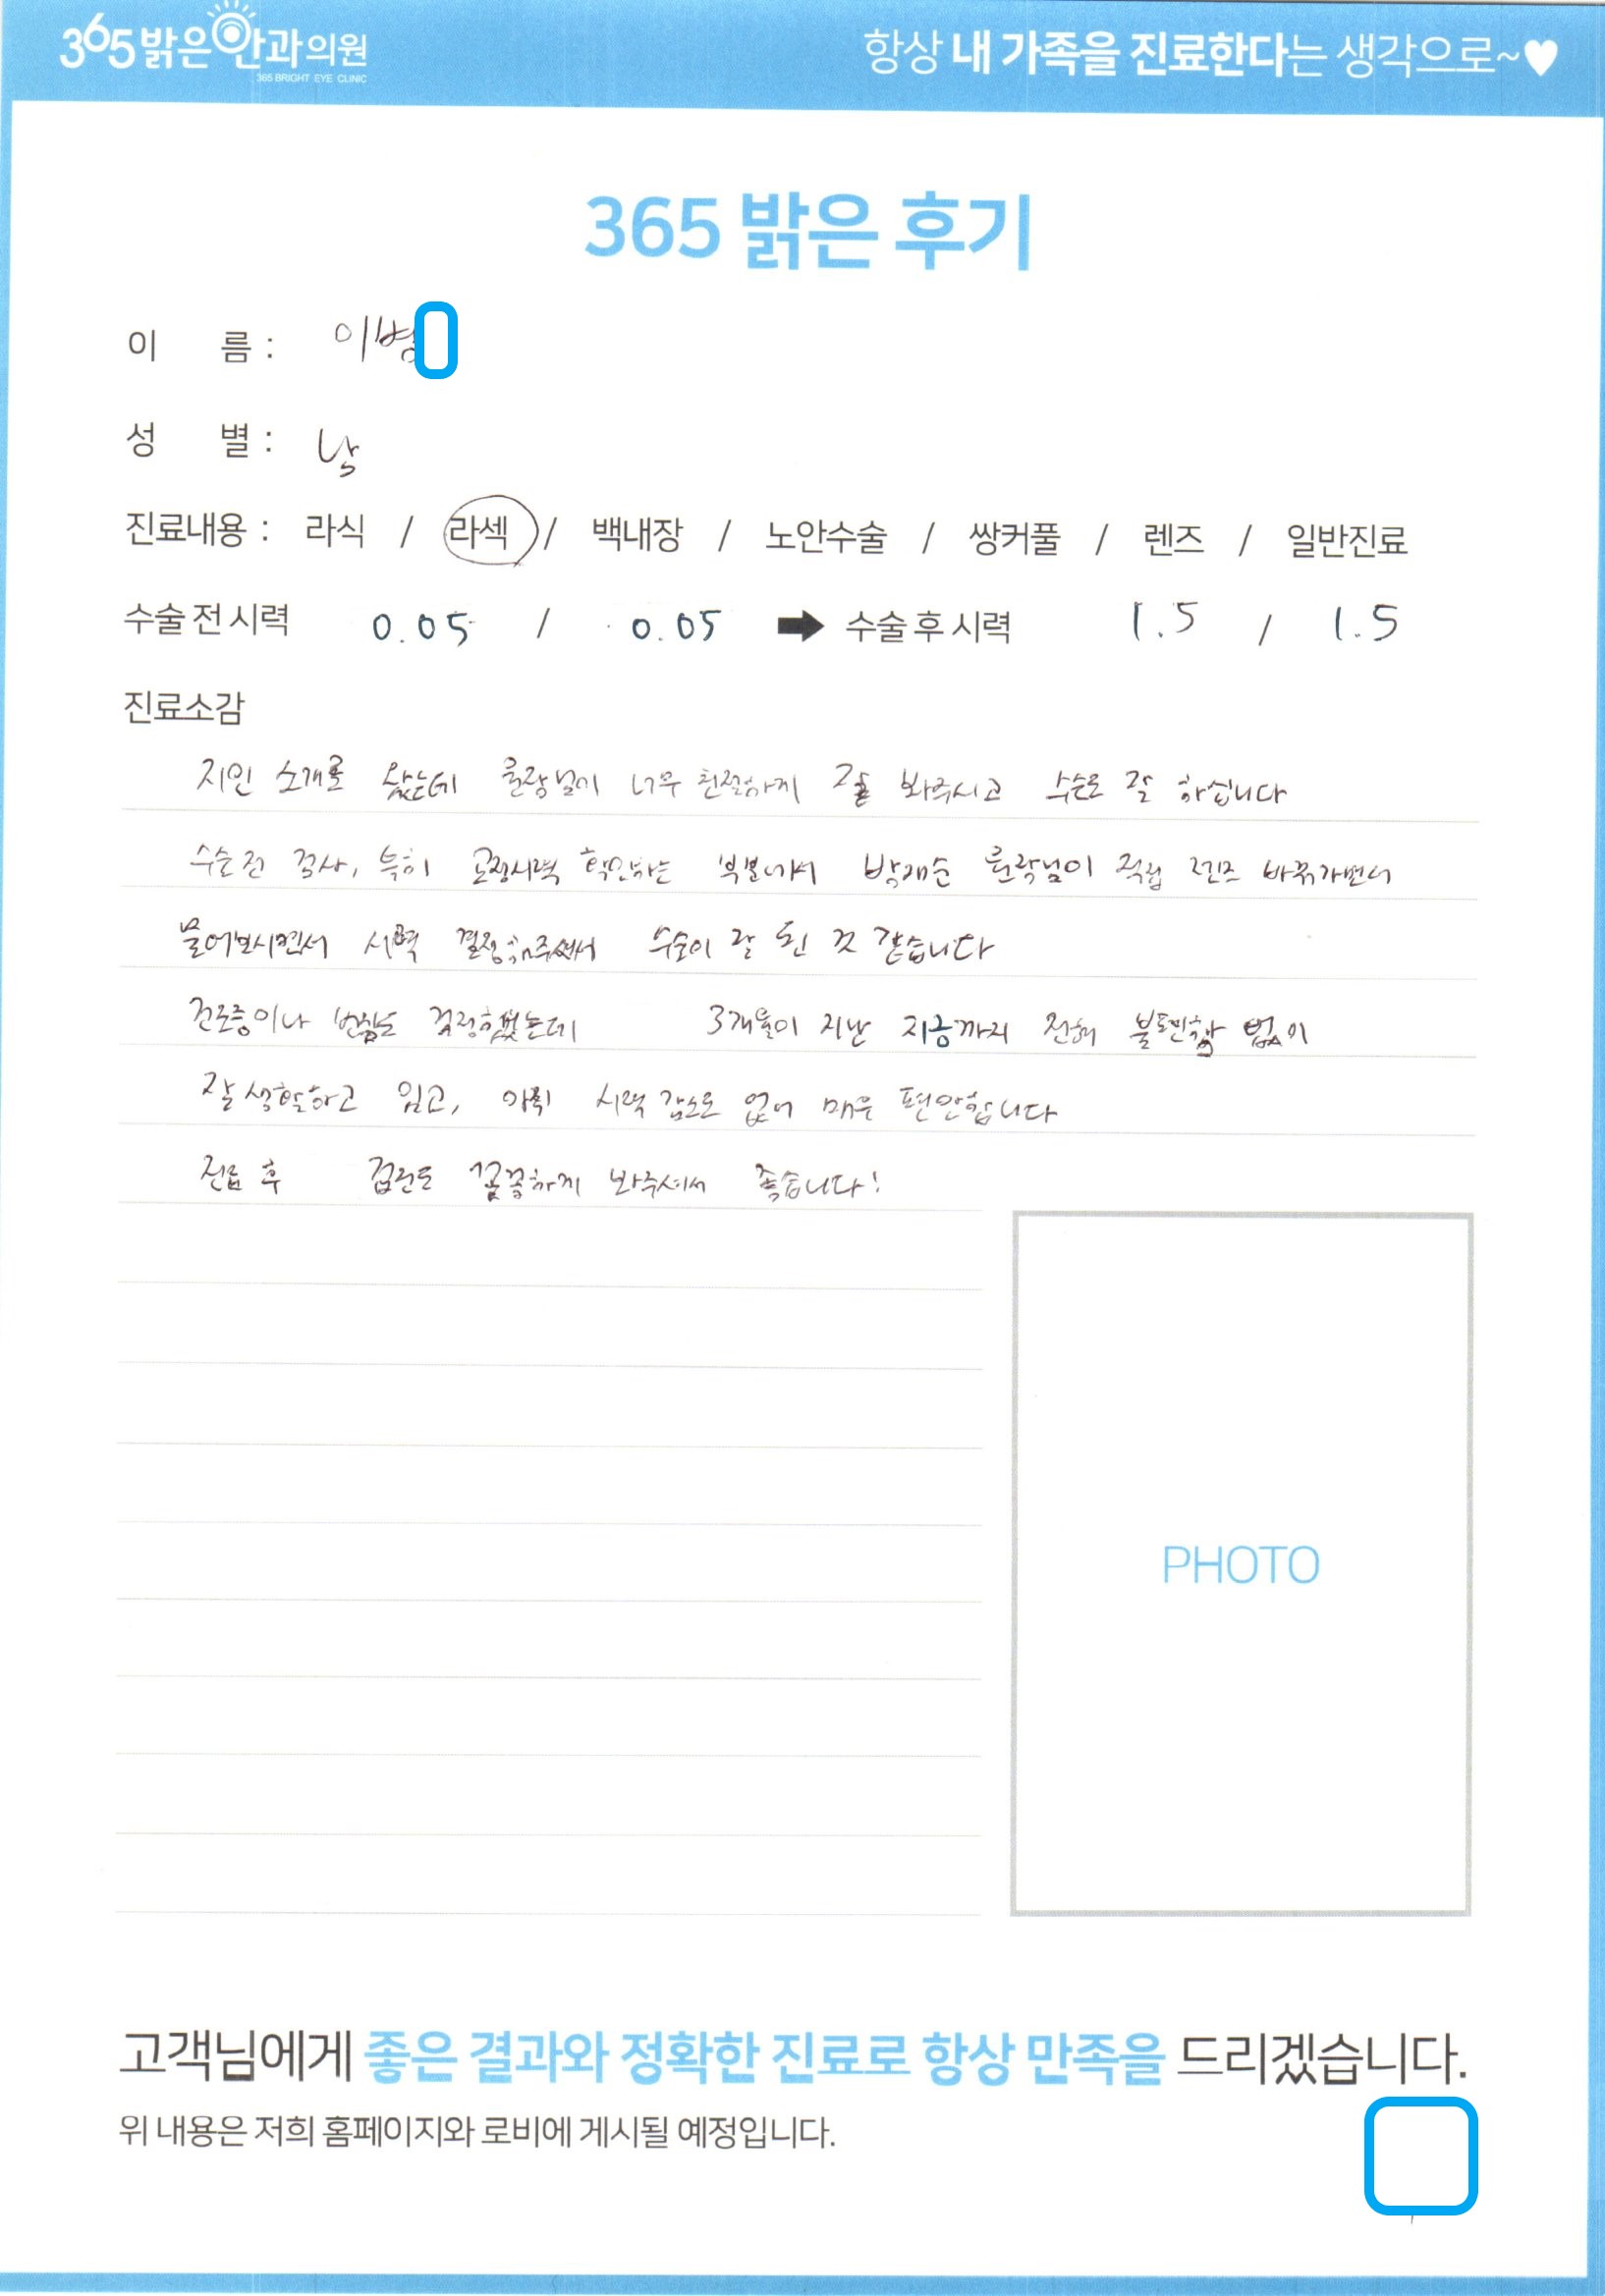 365 밝은안과의원
365 BRIGHT EYE CLINIC
항상 내 가족을 진료한다는 생각으로~♥
365 밝은 후기
이 름 : 이병
성 별 : 남
진료내용 : 라식 / 라섹 / 백내장 / 노안수술 / 쌍커풀 / 렌즈 / 일반진료
수술 전 시력 0.05 / 0.05 ➡ 수술 후 시력 1.5 / 1.5
진료소감
지인 소개로 왔는데 원장님이 너무 친절하게 잘 봐주시고 수술도 잘 하십니다
수술 전 검사, 특히 교정시력 확인하는 부분에서 원장님이 직접 렌즈 바꿔가면서
물어보시면서 시력 결정해주셔서 수술이 잘 된 것 같습니다
건조증이나 걱정했는데 3개월이 지난 지금까지 전혀 불편함 없이
잘 생활하고 있고, 시력 감소도 없어 매우 편안합니다
진료 후 검진도 꼼꼼하게 봐주셔서 좋습니다!
PHOTO
고객님에게 좋은 결과와 정확한 진료로 항상 만족을 드리겠습니다.
위 내용은 저희 홈페이지와 로비에 게시될 예정입니다.